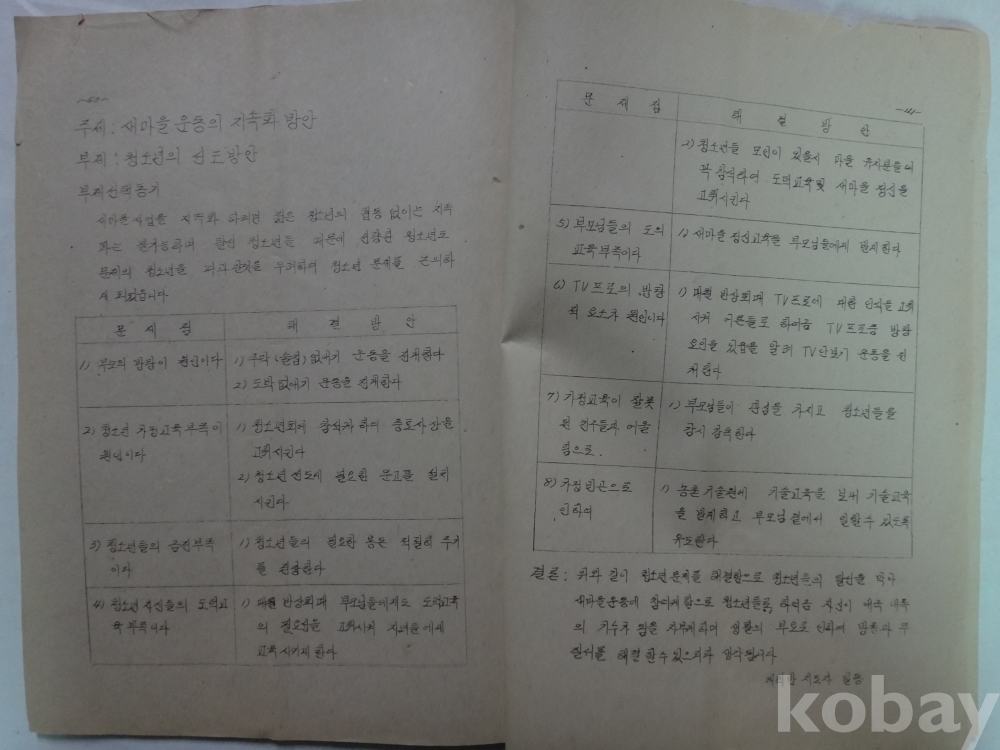 주제: 새마을운동의 지속화 방안
부제: 청소년의 선도방안
부제선택동기
새마을사업을 지속화 하려면 젊은 청소년의 협동 없이는 지속
화는 불가능하며
청소년 문제를 논의하
게 되었습니다.
문제점 해결방안
1) 부모의 방탕이 원인이다
1) 주막(술집) 없애기 운동을 전개한다
2) 도박 없애기 운동을 전개한다
2) 청소년 가정교육 부족이
원인이다
1) 청소년회에 참석케 하여 충효사상을
고취시킨다
2) 청소년 선도에 필요한 문고를 설치
시킨다
3) 청소년들의 금전부족
이다
1) 청소년들의 필요한 용돈 적절히 주기
를 권장한다
4) 청소년 자신들의 도덕교
육 부족이다
1) 매월 반상회때 부모님들에게도 도덕교육
의 필요성을 고취시켜 자녀들에게
교육시키게 한다
문제점 해결방안
2) 청소년들 모임이 있을시 마을 유지분들이
꼭 참석하여 도덕교육및 새마을 정신을
고취시킨다
5) 부모님들의 도의
교육부족이다
1) 새마을 정신교육을 부모님들에게 반시한다
6) TV프로의 방탕
적 요소가 원인이다
1) 매월 반상회때 TV프로에 대한 인식을 고취
시켜 어른들로 하여금 TV프로중 방탕
요인을 있음을 알려 TV안보기 운동을 전
개한다
7) 가정교육이 잘못
된 친구들과 어울
림으로.
1) 부모님들이 관심을 가지고 청소년들을
항시 감독한다
8) 가정빈곤으로
인하여
1) 농촌기술원에 기술교육을 보내 기술교육
을 받게하고 부모님 곁에서 일할수 있도록
유도한다
결론: 위와 같이 청소년문제를 해결함으로 청소년들의
새마을운동에 참여케함으로 청소년들로 하여금 자신이
의 기수가 됨을 자부케하며 생활의
질서를 해결할수 있으리라 생각됩니다
kobay